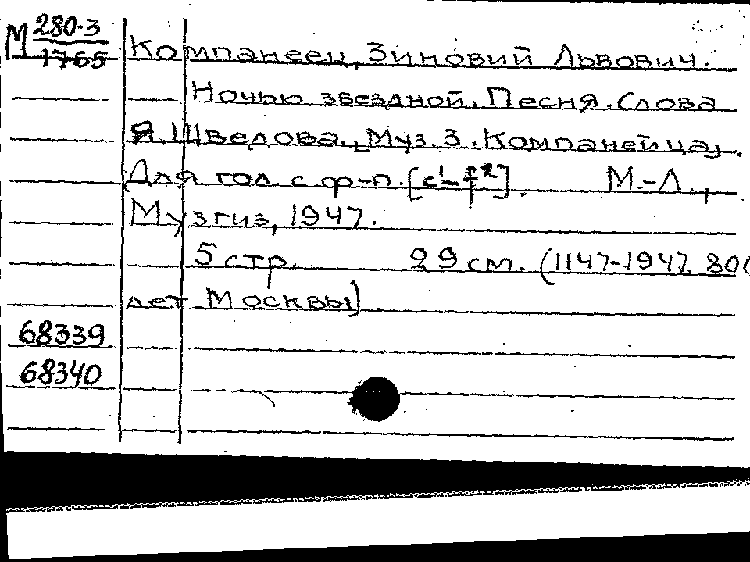 М 280-3
1765
Компанеец, Зиновий Львович.
Ночью звездной. Песня. Слова
Я. Шведова., Муз. З. Компанейца,.
Для гол с ф-п. [c¹-f²]. М.-Л.,
Музгиз, 1947.
5 стр. 29 см. (1147-1947. 800
лет Москвы)
68339
68340